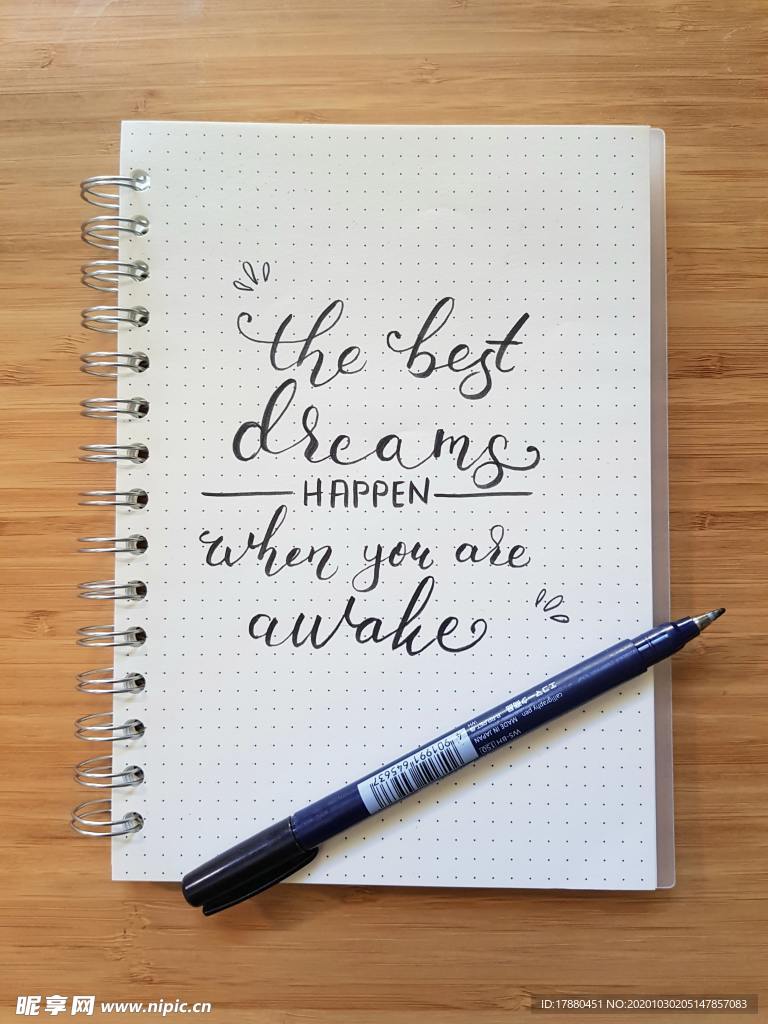 the best
dreams
HAPPEN
when you are
awake
エコマーク商品
calligraphy pen
MADE IN JAPAN
WS-BH(150)
4901991645637
昵享网 www.nipic.cn
ID:17880451 NO:20201030205147857083